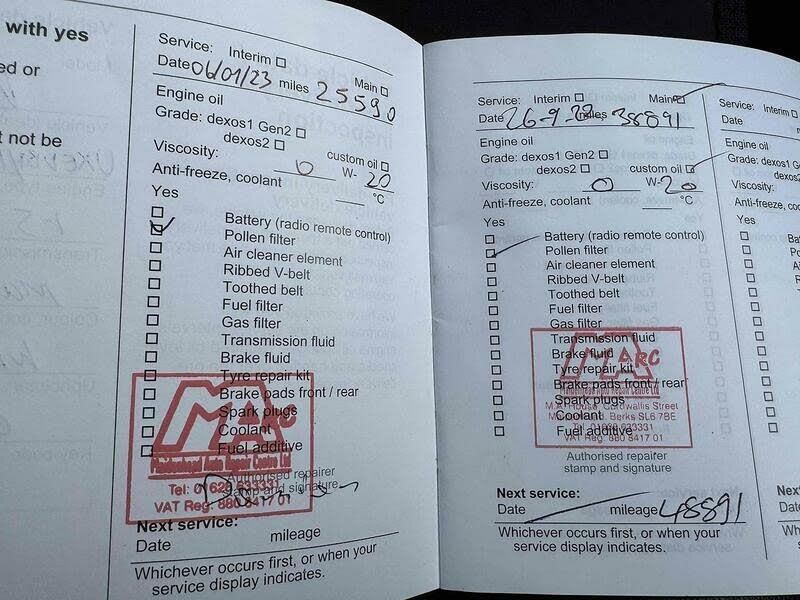 with yes
ed or
t not be
Service: Interim
Main
Date 06/01/23 miles 25590
Engine oil
Grade: dexos1 Gen2
dexos2
custom oil
Viscosity: 0 W- 20
Anti-freeze, coolant °C
Yes
Battery (radio remote control)
Pollen filter
Air cleaner element
Ribbed V-belt
Toothed belt
Fuel filter
Gas filter
Transmission fluid
Brake fluid
Tyre repair kit
Brake pads front / rear
Spark plugs
Coolant
Fuel additive
MARC
Maidenhead Auto Repair Centre Ltd
Authorised repairer
stamp and signature
Tel: 01628 633331
VAT Reg: 880 8417 01
Next service:
Date mileage
Whichever occurs first, or when your
service display indicates.
Service: Interim Main
Date 26-9-23 miles 38891
Engine oil
Grade: dexos1 Gen2
dexos2 custom oil
Viscosity: 0 W- 20
Anti-freeze, coolant °C
Yes
Battery (radio remote control)
Pollen filter
Air cleaner element
Ribbed V-belt
Toothed belt
Fuel filter
Gas filter
Transmission fluid
Brake fluid
Tyre repair kit
Brake pads front / rear
Spark plugs
Coolant
Fuel additive
MARC
Maidenhead Auto Repair Centre Ltd
Cordwallis Street
Berks SL6 7BE
Tel: 01628 633331
VAT Reg: 880 8417 01
Authorised repairer
stamp and signature
Next service:
Date mileage 48891
Whichever occurs first, or when your
service display indicates.
Service: Interim
Date
Engine oil
Grade: dexos1 G
dexos2
Viscosity:
Anti-freeze, coolan
Yes
Ba
Po
Air
Ri
To
Fu
Ga
Tra
Br
Ty
Br
Sp
Co
Fu
Au
sta
Next service:
Date
Whichever occu
service display